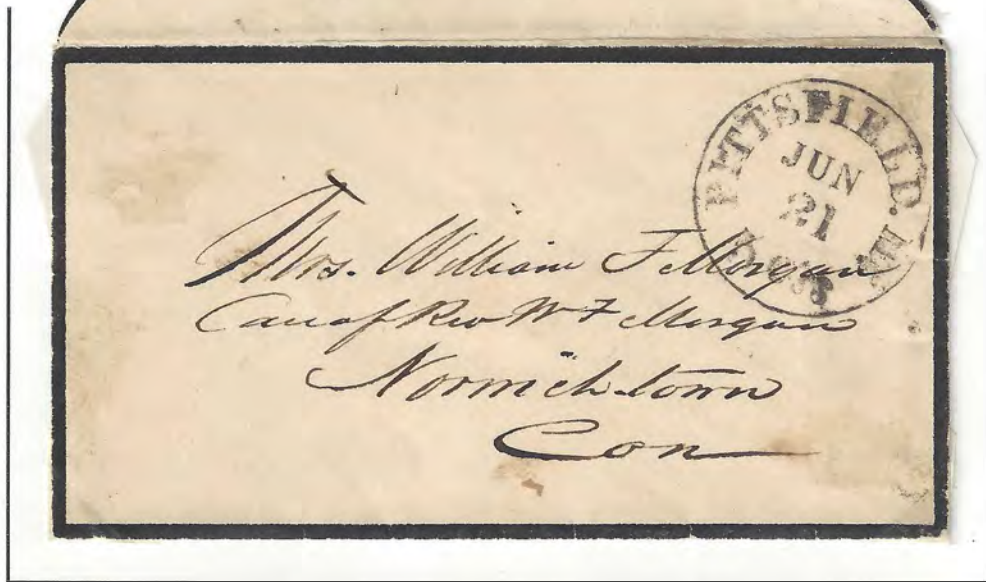 PITTSFIELD. Ms.
JUN
21
PAID 3
Mrs. William F Morgan
Care of Rev Wm F Morgan
Norwich-town
Con